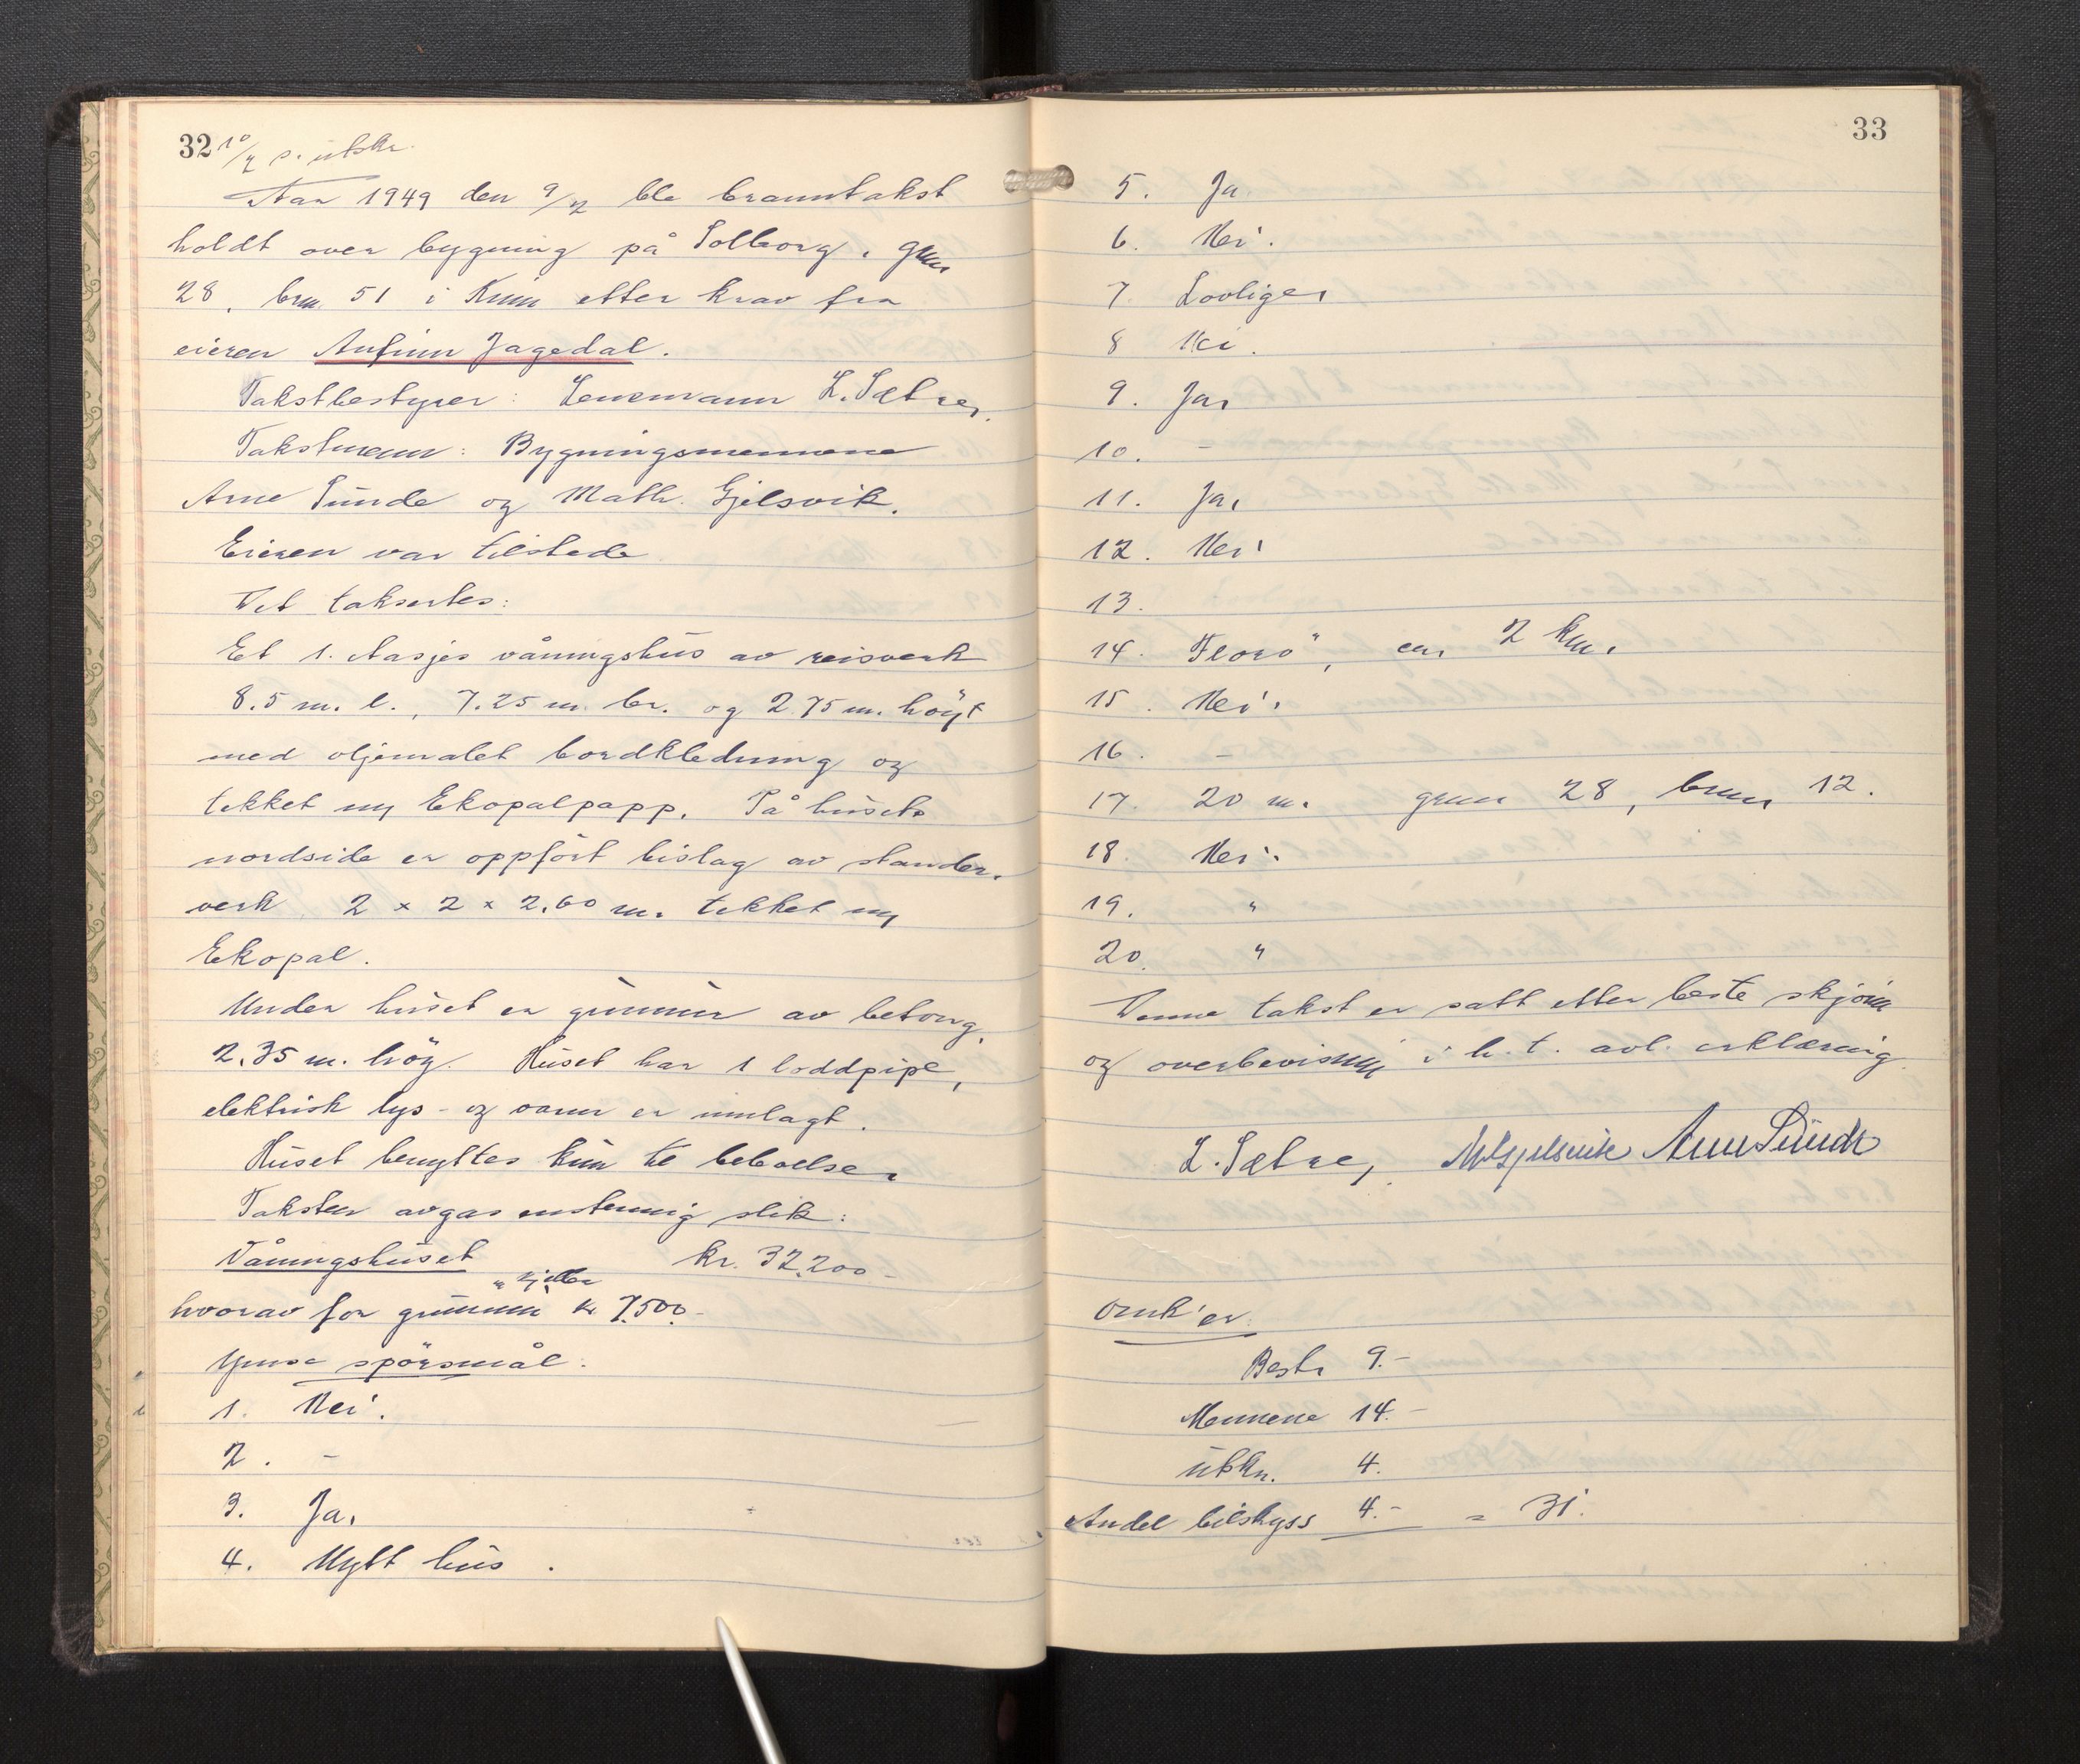 32 10/2 s. utskr.
Aar 1949 den 9/2 ble branntakst
holdt over bygning på Solborg, gnr
28, brn. 51 i Kinn etter krav fra
eieren Anfinn Jagedal.
Takstbestyrer: Lensmann L. Sætre,
Takstmenn: Bygningsmennene
Arne Sunde og Math. Gjelsvik.
Eieren var tilstede
Det takseres:
Et 1. etasjes våningshus av reisverk
8.5 m. l., 7.25 m. br. og 2.75 m. höyt
med oljemalet bordkledning og
tekket m/ Ekopalpapp. På husets
nordside er oppfört bislag av stander-
verk 2 x 2 x 2.60 m. tekket m/
Ekopal.
Under huset er grunnmur av betong,
2.35 m. hög. Huset har 1 loddpipe,
elektrisk lys- og varme er innlagt.
Huset benyttes kun til beboelse.
Taksten avgas enstemmig slik:
Våningshuset kr. 32.200-
m/kjeller
hvorav for grunnmur kr 7.500.-
Ymse spörsmål.
1. Nei.
2. -
3. Ja.
4. Nytt hus.
33
5. Ja
6. Nei.
7. Lovlige
8 Nei.
9. Ja,
10. -
11. Ja,
12. Nei
13.
14. Florö, ca. 2 km.
15. Nei.
16. -
17. 20 m. gnr 28, bnr 12.
18. Nei.
19. "
20. "
Denne takst er satt etter beste skjönn
og overbevisning i h. t. avl. erklæring.
L. Sætre, M Gjelsvik Arne Sunde
Omk'er.
Best. 9.-
Mennene 14.-
utskr. 4.
Andel bilskyss 4.- = 31.